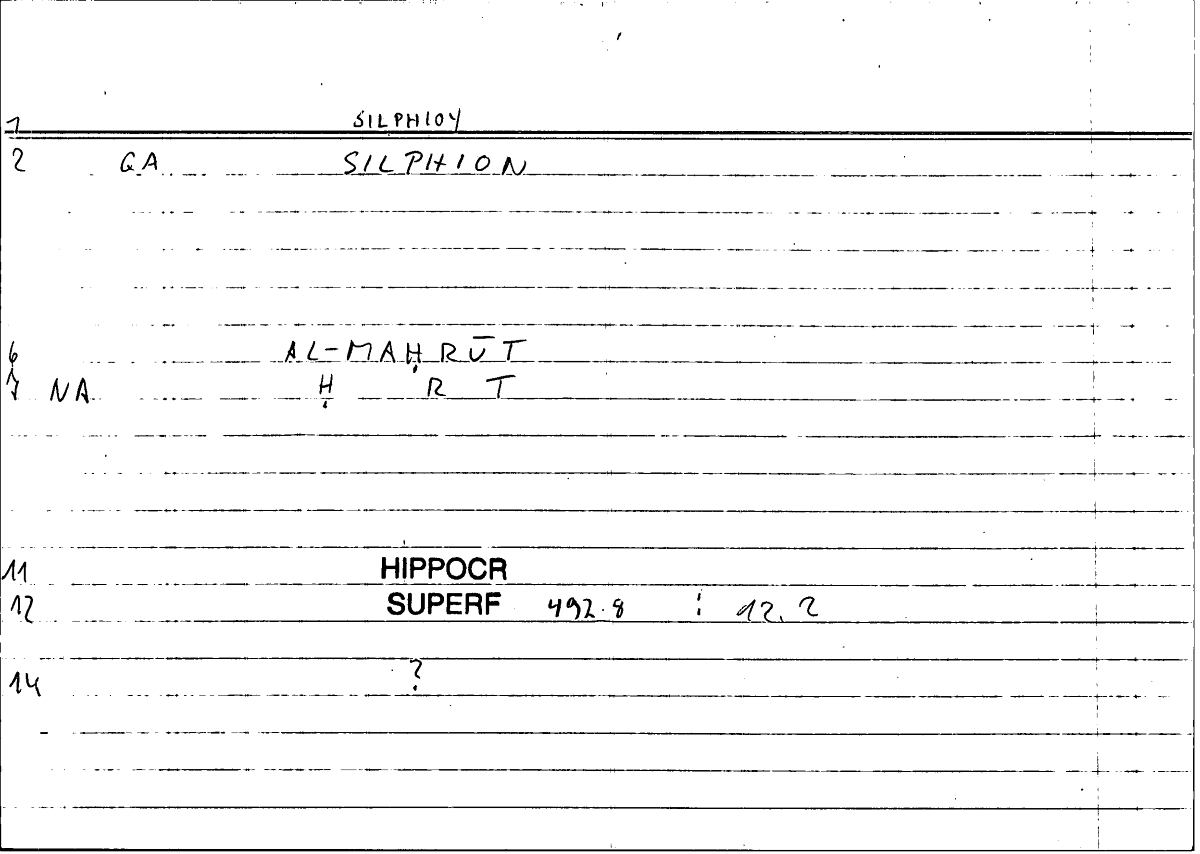 1 SILPHION
2 GA SILPHION
6 AL-MAḤRŪT
7 NA Ḥ R T
11 HIPPOCR
12 SUPERF 492.8 : 12.2
14 ?